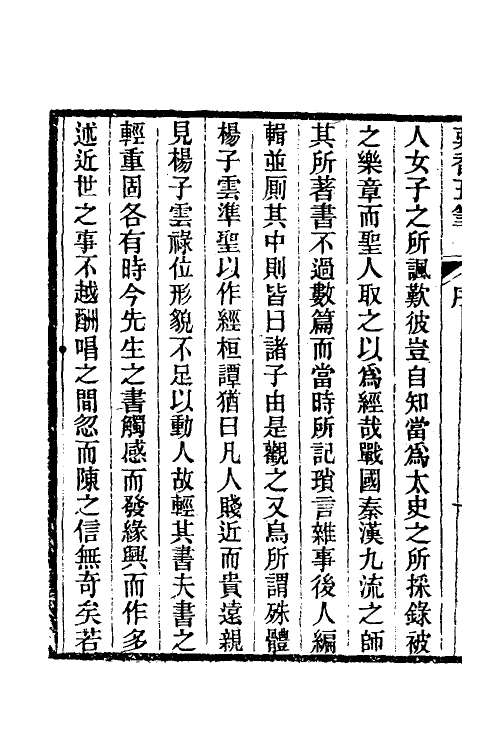 人女子之所諷歎彼豈自知當爲太史之所採錄被
之樂章而聖人取之以爲經哉戰國秦漢九流之師
其所著書不過數篇而當時所記瑣言雜事後人編
輯並厠其中則皆曰諸子由是觀之又烏所謂殊體
楊子雲準聖以作經桓譚猶曰凡人賤近而貴遠親
見楊子雲祿位形貌不足以動人故輕其書夫書之
輕重固各有時今先生之書觸感而發緣興而作多
述近世之事不越酬唱之間忽而陳之信無奇矣若